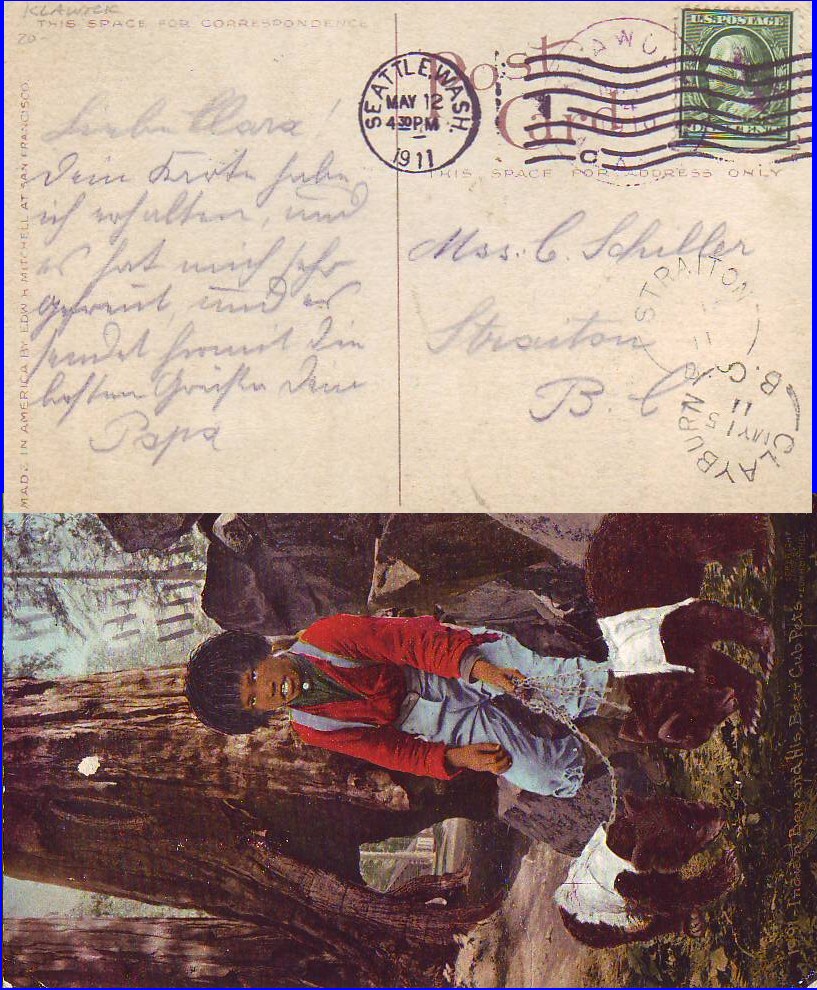 KLAWICK
THIS SPACE FOR CORRESPONDENCE
20-
MADE IN AMERICA BY EDW. H. MITCHELL AT SAN FRANCISCO.
Post
Card
THIS SPACE FOR ADDRESS ONLY
U.S. POSTAGE
ONE CENT
SEATTLE, WASH.
MAY 12
4 30 PM
1911
Liebe Clara!
Dein Karte habe
ich erhalten, und
es hat mich sehr
gefreut, und es
sendet hiermit die
besten Grüße dein
Papa
Mss. C. Schiller
Straiton
B. C.
STRAITON
B.C.
CLAYBURN
MY 15
11
B.C.
Indian Boy and His Bear Cub Pets.